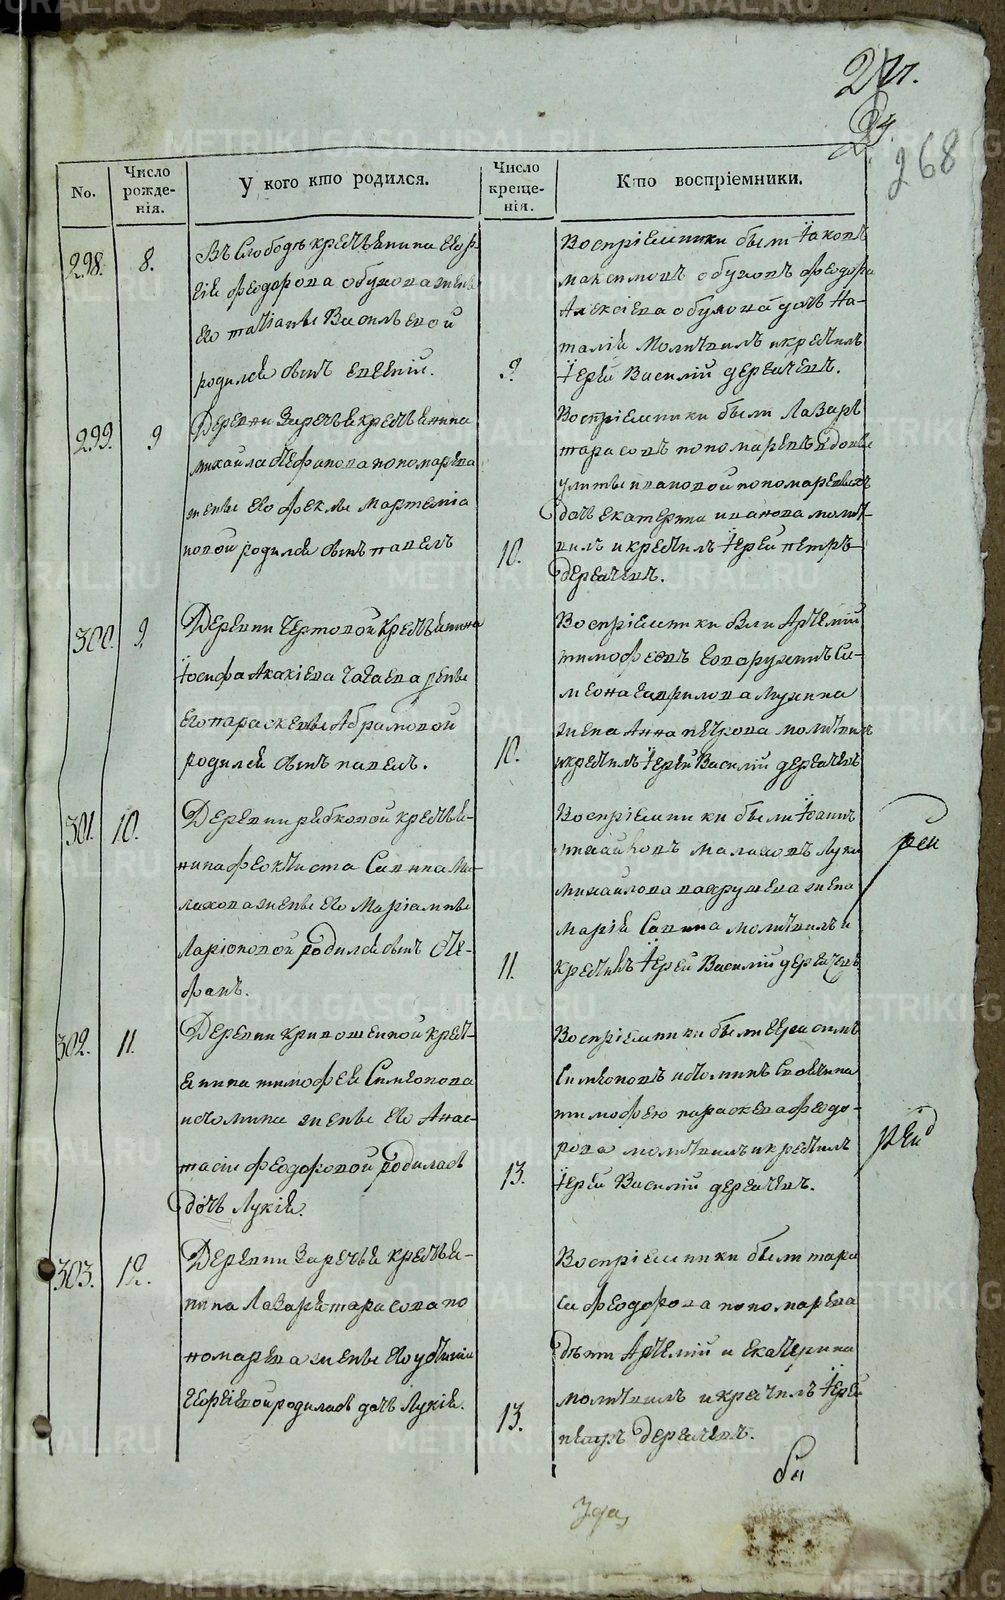 METRIKI.GASO-URAL.RU
268
No.
Число рожде-нія.
У кого кто родился.
Число креще-нія.
Кто воспріемники.
298.
8.
Въ Слободѣ крестьянина Геор-
гія Феодорова обухова женѣ
его татіанѣ Васильевой
родился сынъ Евгеній.
9.
Воспріемники были Іаковъ
максимовъ обуховъ феодора
Алексіева обухова дочь На-
талія Молитвилъ и крестилъ
Іерей Василій дергачевъ.
299.
9
Деревни Заречья крестьянина
михаила Стефанова пономарева
женѣ его феклѣ Мартеміа
новой родился сынъ павелъ
10.
Воспріемники были Лазарь
тарасовъ пономаревъ вдовы
улиты ивановой пономаревыхъ
дочь екатерина иванова молит-
вилъ и крестилъ Іерей петръ
дергачевъ.
300.
9.
Деревни Чертовой крестьянина
Іосифа Акакіева женѣ
его параскевѣ Абрамовой
родился сынъ павелъ.
10.
Воспріемники были Артемій
тимофеевъ Си-
меона гаврилова Мухина
жена Анна молитвилъ
и крестилъ Іерей Василій дергачевъ
301.
10.
Деревни рябковой крестья-
нина феоктиста Савина Ма-
лахова женѣ его Маріамнѣ
Ларіоновой родился сынъ Сте-
фанъ.
11.
Воспріемники были Іоаннъ
малаховъ Луки
михаилова вахрушева жена
марія Савина молитвилъ и
крестилъ Іерей Василій дергачевъ
302.
11.
Деревни кривошеиной крест-
янина тимофея Симеонова
истомина женѣ его Анас-
тасіи феодоровой родилась
дочь Лукія.
13.
Воспріемники были Герасимъ
Симеоновъ истоминъ
тимофею параскева феодо-
рова молитвилъ и крестилъ
Іерей Василій дергачевъ.
303.
12.
Деревни Заречья крестья-
нина Лазаря тарасова по
номарева женѣ его устиніи
Георгіевой родилась дочь Лукія.
13.
Воспріемники были тара
са феодорова пономарева
дѣти Артемій и Екатерина
молитвилъ и крестилъ Іерей
петръ дергачевъ.